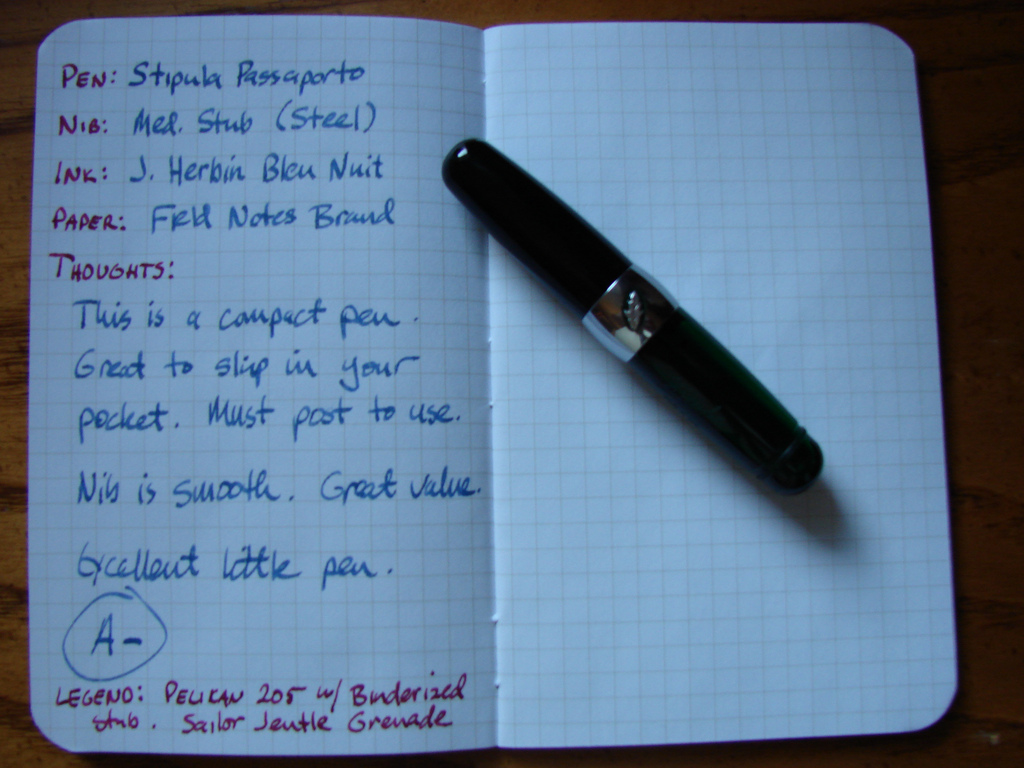 PEN: Stipula Passaporto
NIB: Med. Stub (Steel)
INK: J. Herbin Bleu Nuit
PAPER: Field Notes Brand
THOUGHTS:
This is a compact pen.
Great to slip in your
pocket. Must post to use.
Nib is smooth. Great value.
Excellent little pen.
A-
LEGEND: PELIKAN 205 w/ Binderized
stub. Sailor Jentle Grenade